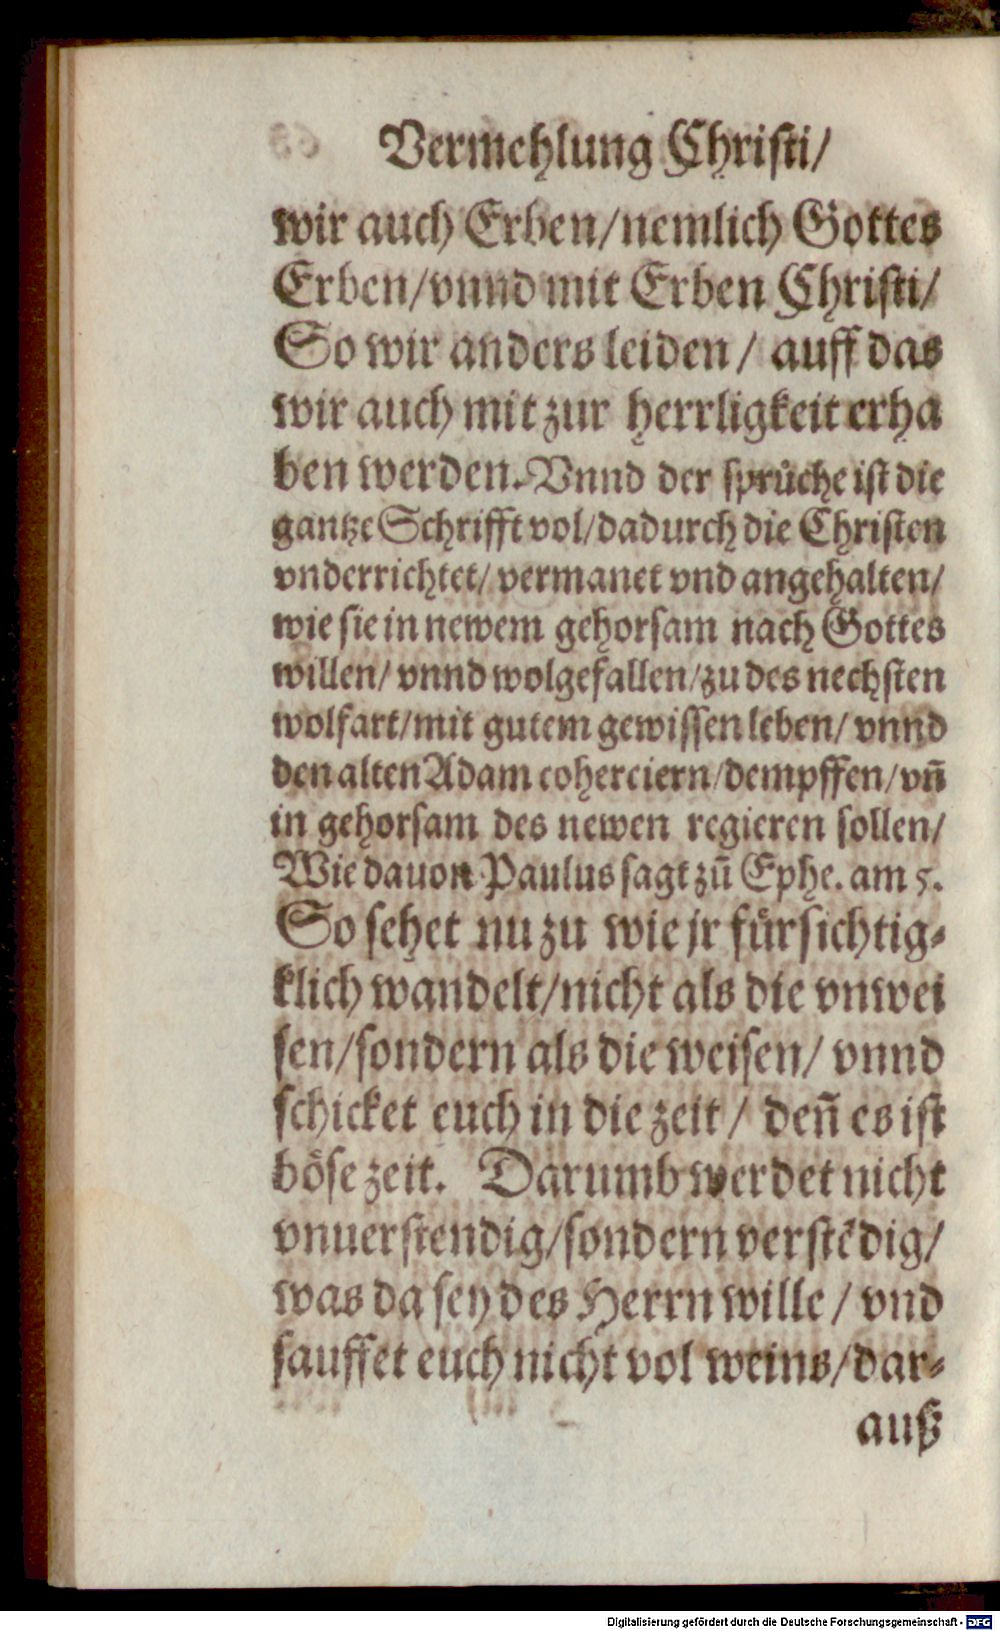 Vermehlung Christi/
wir auch Erben/nemlich Gottes
Erben/vnnd mit Erben Christi/
So wir anders leiden/ auff das
wir auch mit zur herrligkeit erha
ben werden. Vnnd der sprůche ist die
gantze Schrifft vol/dadurch die Christen
vnderrichtet/ vermanet vnd angehalten/
wie sie in newem gehorsam nach Gottes
willen/ vnnd wolgefallen/zu des nechsten
wolfart/mit gutem gewissen leben/ vnnd
den alten Adam coherciern/dempffen/vñ
in gehorsam des newen regieren sollen/
Wie dauon Paulus sagt zů Ephe. am 5.
So sehet nu zu wie jr fürsichtig⸗
klich wandelt/nicht als die vnwei
sen/sondern als die weisen/ vnnd
schicket euch in die zeit/ deñ es ist
böse zeit. Darumb werdet nicht
vnuerstendig/sondern verstēdig/
was da sey des Herrn wille/ vnd
sauffet euch nicht vol weins/dar⸗
auß
Digitalisierung gefördert durch die Deutsche Forschungsgemeinschaft - DFG